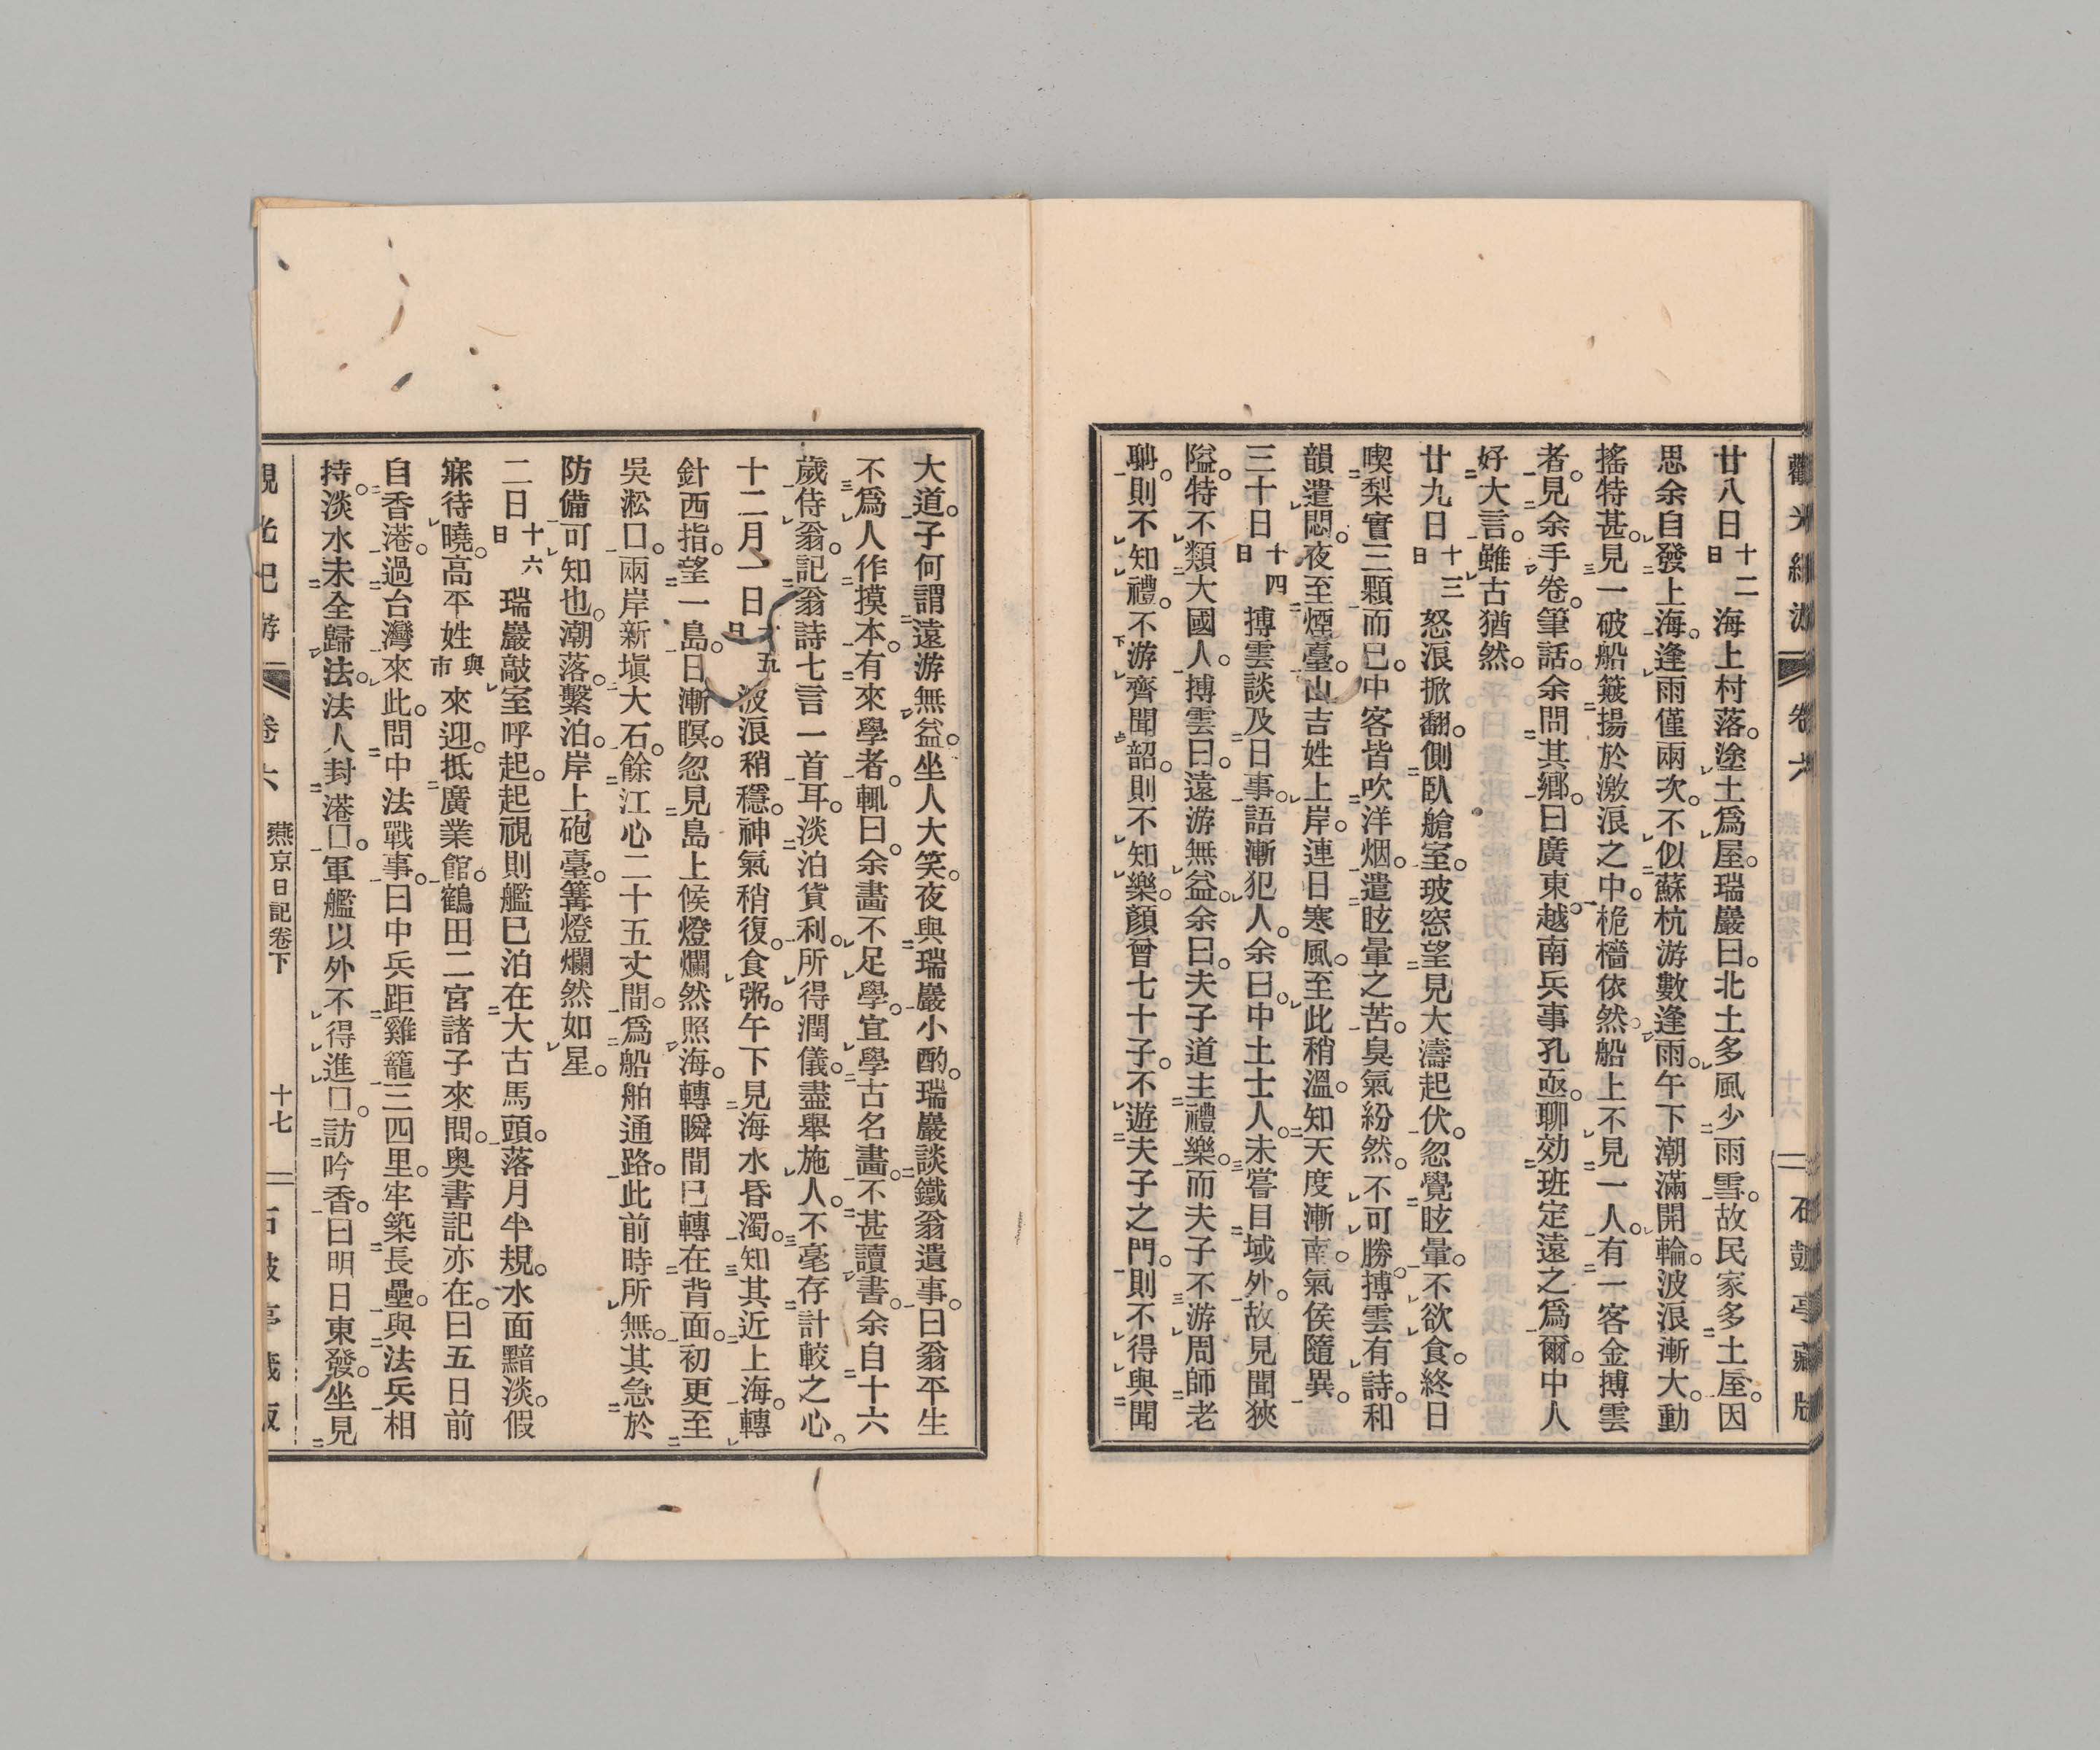 觀光紀游　卷六　石鼓亭藏版
廿八日十二日海上村落。塗土爲屋。瑞巖曰。北土多風少雨雪。故民家多土厔。因
思余自發上海。逢雨僅兩次。不似蘇杭游數逢雨。午下潮滿開輪。波浪漸大。動
搖特甚。見一破船簸揚於激浪之中。桅檣依然。船上不見一人。有一客金搏雲
者。見余手卷。筆話。余問其鄉。曰廣東。越南兵事孔亟。聊効班定遠之爲爾。中人
好大言。雖古猶然。
廿九日十三日怒浪掀翻。側臥艙室。玻窓望見大濤起伏。忽覺眩暈。不欲食。終日
喫梨實三顆而已。中客皆吹洋烟。遣眩暈之苦。臭氣紛然。不可勝。搏雲有詩。和
韻遣悶。夜至煙臺。山吉姓上岸。連日寒風。至此稍溫。知天度漸南。氣侯隨異。
三十日十四日搏雲談及日事。語漸犯人。余曰。中土士人。未嘗目域外。故見聞狹
隘。特不類大國人。搏雲曰。遠游無益。余曰。夫子道主禮樂。而夫子不游周師老
聃。則不知禮。不游齊聞韶。則不知樂。顏曾七十子。不遊夫子之門。則不得與聞
大道。子何謂遠游無益。坐人大笑。夜與瑞巖小酌。瑞巖談鐵翁遺事。曰翁平生
不爲人作摸本。有來學者。輒曰。余畵不足學。宜學古名畵。不甚讀書。余自十六
歲侍翁。記翁詩七言一首耳。淡泊貨利。所得潤儀。盡舉施人。不毫存計較之心。
十二月一日十五日波浪稍穩。神氣稍復。食粥。午下見海水昏濁。知其近上海。轉
針西指。望一島。日漸瞑。忽見島上候燈爛然照海。轉瞬間已轉在背面。初更至
吳淞口。兩岸新塡大石。餘江心二十五丈間。爲船舶通路。此前時所無。其急於
防備可知也。潮落。繫泊。岸上砲臺。篝燈爛然如星。
二日十六日瑞巖敲室呼起。起視則艦已泊在大古馬頭。落月半規。水面黯淡。假
寐待曉。高平姓與市來迎。抵廣業館。鶴田二宮諸子來問。奥書記亦在。曰五日前
自香港。過台灣來此。問中法戰事。曰中兵距雞籠三四里。牢築長壘。與法兵相
持。淡水未全歸法。法人封港口。軍艦以外不得進口。訪吟香。曰明日東發。坐見
觀光紀游　卷六　燕京日記卷下　十七　石鼓亭藏版